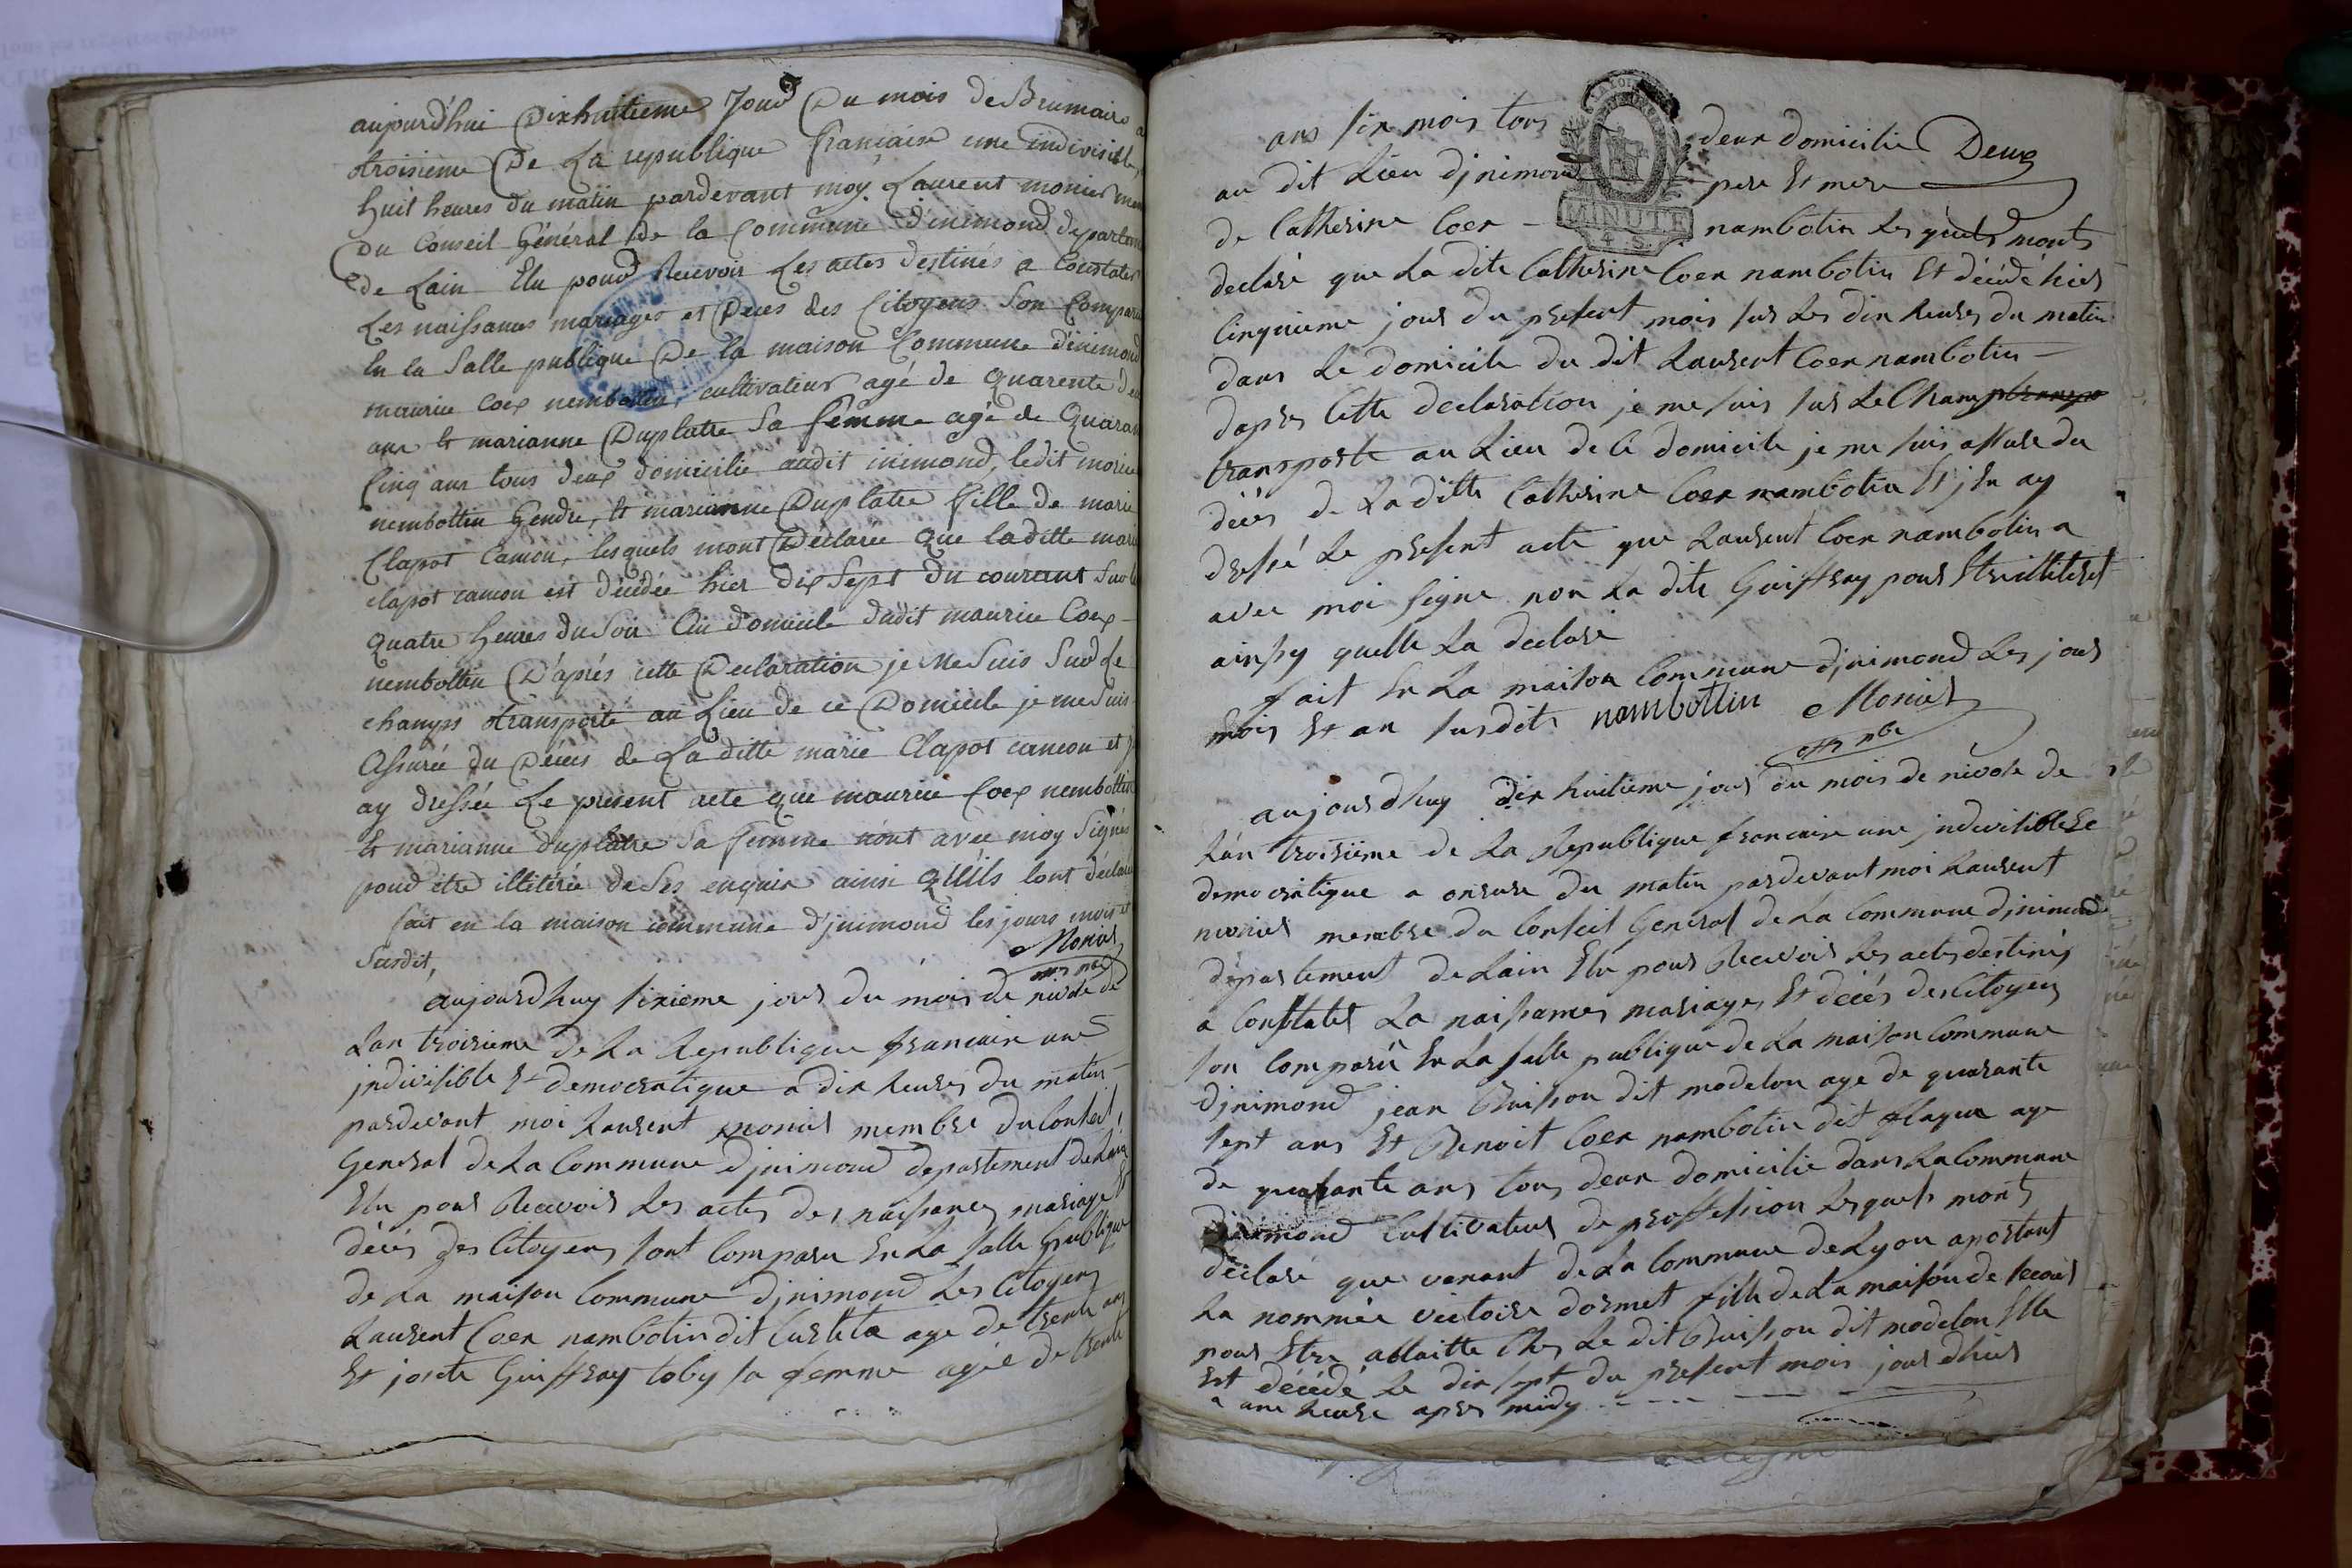 aujourd'hui Dixhuitieme Jour Du mois de Brumaire a
troisieme De La republique francaise une indivisible,
huit heures du matin pardevant moy Laurent monier mem
Du Conseil Général de la Commune d'inimond departem
de Lain Elu pour Recevoir Les actes destinés a Constater
Les naissances mariages et Deces des Citoyens Son Comparu
En la Salle publique De la maison Commune d'inimond
maurice Coex nembottin, cultivateur agé de quarente deu
ans Et marianne Duplatre Sa femme agé de Quaran
Cinq ans tous deux domicilié audit inimond, ledit morice
nembottin Gendre, Et marianne Duplatre fille de marie
Clapot Camon, lesquels mont Déclarée que laditte marie
clapot camon est décédée hier dix Sept du courant Sur l
quatre heures du Soir Au domicile dudit maurice Coex
nembottin D'après cette Declaration je me Suis Sur Le
champs transporté au Lieu de ce Domicile je me Suis
Assurée du Décès de La ditte marie Clapot camon et j
ay dressée Le present acte que maurice Coex nembottin
Et marianne duplatre Sa femme nont avec moy Signés
pour etre illitérée de Ses enquix ainsi qu'ils lont déclaré
fait en la maison commune d'jnimond les jours mois et
Susdit, Monier
aujourdhuy sixieme jour du mois de nivose de
Lan troisieme de La Republique francaise une
jndivisible Et democratique a dix heures du matin
pardevant moi Laurent monier membre du Conseil
General de La Commune djnimond departement de Lain
Elu pour Recevoir Les actes des naissances mariage Et
décès des Citoyens sont Comparu En La salle publique
de La maison Commune djnimond Les Citoyens
Laurent Coex nambotin dit Custeta age de trente ans
Et josete Guiffray toby sa femme agée de trente
ans six mois tous deux domicilié Deux
au dit Lieu djnimond pere Et mere
de Catherine Coex - nambotin Les quels monts
declaré que La dite Catherine Coex nambotin Et décédé hier
Cinquieme jour du present mois sur Les dix heures du matin
dans Le domicile du dit Laurent Coex nambotin
dapres Cette declaration je me suis sur Le Champ
transporte au Lieu de Ce domicile je me suis assure du
décès de La ditte Catherine Coex nambotin Et jEn ay
dressé Le present acte que Laurent Coex nambotin a
avec moi signe non La dite Guiffray pour Etre illiteret
ainsy quelle La declaré
fait En La maison Commune djnimond Les jour
mois Et an susdits nambottin Monier
aujourdhuy dix huitieme jour du mois de nivose de
Lan troisieme de La Republique francaise une jndivisible Et
democratique a onzeure du matin pardevant moi Laurent
monier membre du Conseil General de La Commune djnimond
département de Lain Elu pour Recevoir Les actes destinés
a Constater La naissances mariages Et décés des Citoyens
son Comparû En La salle publique de La maison Commune
djnimond jean Buisson dit modelon age de quarante
sept ans Et Benoit Coex nambotin dit flaque age
de quarante ans tous deux domicilié dans La Commune
djnimond Cultivateur de proffession Lesquels monts
déclaré que venant de La Commune de Lyon aportant
La nommée victoire dormet fille de La maison de secour
pour Etre allaitte Ches Le dit Buisson dit modelon Elle
Est décédé Le dix sept du present mois jour dhier
a une heure apres midy
MINUTE